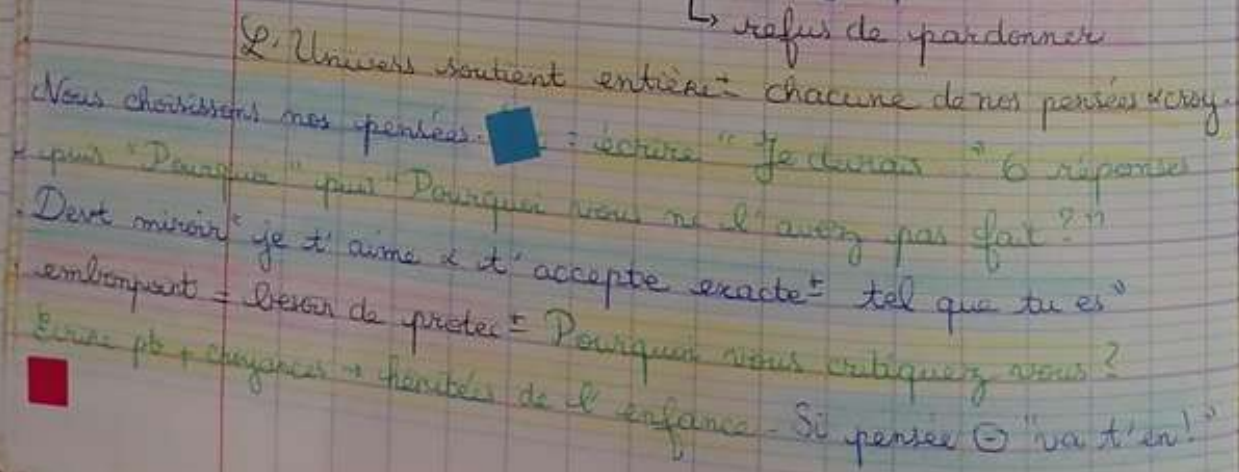 ↳ refus de pardonner
L'Univers soutient entièrt chacune de nos pensées & croy.
Nous choisissons nos pensées. = écrire "Je devrais" 6 réponses
puis "Pourquoi" puis "Pourquoi vous ne l'avez pas fait ?"
Devt miroir "je t'aime & t'accepte exactet tel que tu es"
embonpoint = besoin de protect Pourquoi vous critiquez vous ?
Ecrire pb + croyances → héritées de l'enfance - Si pensée ⊖ "va t'en !"